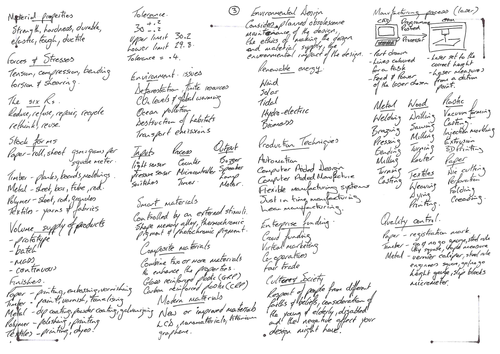 Material properties
Strength, hardness, durable,
elastic, tough, ductile
Forces & Stresses
Tension, compression, bending
torsion & shearing.
The six Rs.
Reduce, refuse, repair, recycle
rethink, reuse.
Stock forms
Paper - roll, sheet gsm grams per square meter.
Timber - planks, boards, mouldings
Metal - sheet, bar, tube, rod.
Polymer - sheet, rod, granules
Textiles - yarns & fabrics
Volume supply of products
- prototype
- batch
- mass
- continuous
Finishes.
Paper - printing, embossing, varnishing
Timber - paint, varnish, tanalising
Metal - dip coating, powder coating, galvanizing
Polymer - polishing, printing
Textiles - printing, dyes.
Tolerance.
+ .2
30 -.2
Upper limit 30.2
Lower limit 29.8
Tolerance = .4
Environment issues
Deforestation finite sources
CO2 levels & global warming
Ocean pollution
Destruction of habitats
Transport emissions
Inputs Process Output
light sensor Counter Buzzer
pressure sensor Microcontroller Speaker
switches Timer Lamp
Motor.
Smart materials
Controlled by an external stimuli.
Shape memory alloy, thermochromic
pigment & photochromic pigment.
Composite materials
Combine two or more materials
to enhance the properties.
Glass reinforced plastic (GRP)
Carbon reinforced plastic (CRP)
Modern materials
New or improved materials
LCD, nanomaterials, titanium
graphene.
3
Environmental Design
Consider, planned obsolescence
maintenance of the design,
the ethics of making the design
and material supply, the
environmental impact of the design.
Renewable energy.
Wind
Solar
Tidal
Hydro-electric
Biomass
Production Techniques
Automation
Computer Aided Design
Computer Aided Manufacture
Flexible manufacturing systems
Just in time manufacturing
Lean manufacturing.
Enterprise funding.
Crowd funding
Virtual marketing
Co-operatives
Fair trade
Culture Society
Respect of people from different
faiths & beliefs, consideration of
the young & elderly, disabled
and the negative effect your
design might have.
Manufacturing process (laser)
- Part drawn
- Lines coloured
for a task
- Feed & Power
of the laser chosen
- Laser set to the
correct height
- Laser measures
from a datum
point.
Metal Wood Plastic
Welding Drilling Vacuum forming
Brazing Sawing Casting
Pressing Milling Injection moulding
Casting Turning Extrusion
Milling Router 3D Printing
Turning
Casting
Textiles
Sewing
Weaving
Dying
Printing.
Paper
Die cutting
Perforating
Folding
Creasing.
Quality control.
Paper - registration mark
Timber - go no go gauge, steel rule
try square, depth measure
Metal - vernier caliper, steel rule
engineers square, plug gauge
height gauge, slip blocks
micrometer